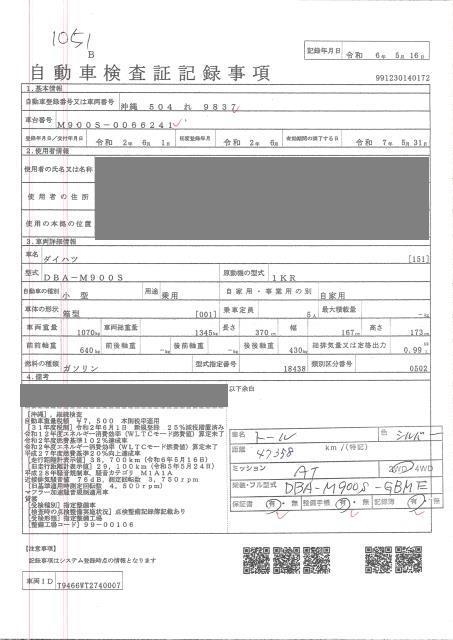 1051
B
記録年月日 令和 6年 5月16日
自動車検査証記録事項
991230140172
1.基本情報
自動車登録番号又は車両番号 沖縄 504 れ 9837
車台番号 M900S-0066241
登録年月日/交付年月日 令和 2年 6月 1日 初度登録年月 令和 2年 6月 有効期間の満了する日 令和 7年 5月31日
2.使用者情報
使用者の氏名又は名称
使用者の住所
使用の本拠の位置
3.車両詳細情報
車名 ダイハツ [151]
型式 DBA-M900S 原動機の型式 1KR
自動車の種別 小型 用途 乗用 自家用・事業用の別 自家用
車体の形状 箱型 [001] 乗車定員 5人 最大積載量 -kg
車両重量 1070kg 車両総重量 1345kg 長さ 370cm 幅 167cm 高さ 173cm
前前軸重 640kg 前後軸重 -kg 後前軸重 -kg 後後軸重 430kg 総排気量又は定格出力 0.99
燃料の種類 ガソリン 型式指定番号 18438 類別区分番号 0502
4.備考
以下余白
[沖縄],継続検査
自動車重量税額 ¥7,500 本則税率適用
[31年度税制]令和2年6月1日 新規登録 25%減税措置済み
令和12年度エネルギー消費効率(WLTCモード燃費値)算定未了
令和2年度燃費基準102%達成車
令和2年度エネルギー消費効率(WLTCモード燃費値)算定未了
平成27年度燃費基準20%向上達成車
[走行距離計表示値]38,700km(令和6年5月16日)
[旧走行距離計表示値]29,100km(令和5年5月24日)
平成28年騒音規制車,騒音カテゴリ M1A1A
近接排気騒音値 76dB,測定回転数 3,750rpm
[旧基準適用時測定回転数 4,500rpm]
マフラー加速騒音規制適用車
[受検種別]指定整備車
[検査時の点検整備実施状況]点検整備記録簿記載あり
[受検形態]指定整備工場
[整備工場コード]99-00106
車名 トール 色 シルバー
距離 47358 km/(特記)
ミッション AT 2WD/4WD
架装・フル型式 DBA-M900S-GBME
保証書 有・無 整備手帳 有・無 記録簿 有・無
【注意事項】
記録事項はシステム登録時点の情報となります
車両ID T9466WT2740007